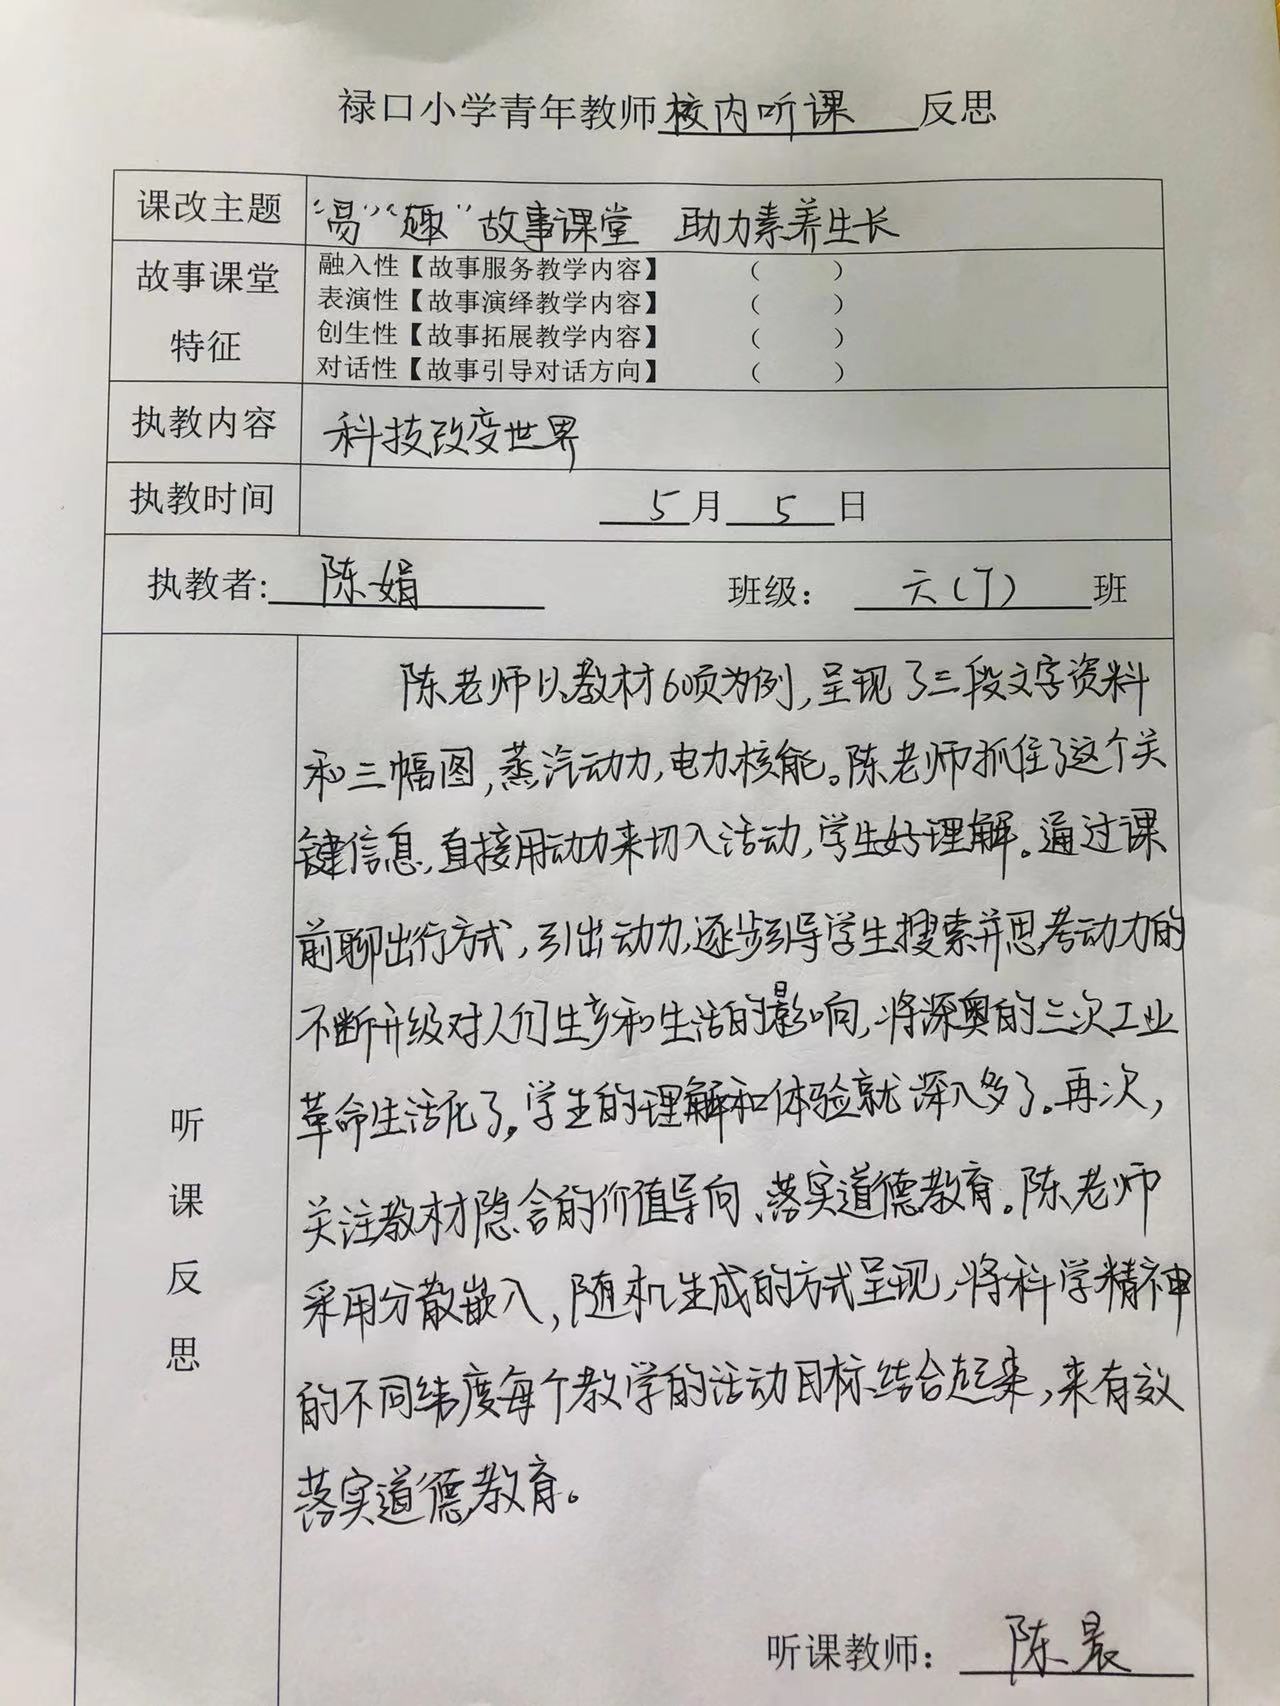 禄口小学青年教师校内听课 反思
课改主题 “易”“趣”故事课堂 助力素养生长
故事课堂特征
融入性【故事服务教学内容】 （ ）
表演性【故事演绎教学内容】 （ ）
创生性【故事拓展教学内容】 （ ）
对话性【故事引导对话方向】 （ ）
执教内容 科技改变世界
执教时间 5月5日
执教者: 陈娟 班级： 六(7)班
听课反思
陈老师以教材60页为例,呈现了三段文字资料
和三幅图,蒸汽动力,电力,核能。陈老师抓住了这个关
键信息,直接用动力来切入活动,学生好理解。通过课
前聊出行方式,引出动力,逐步引导学生搜索并思考动力的
不断升级对人们生产和生活的影响,将深奥的三次工业
革命生活化了。学生的理解和体验就深入多了。再次,
关注教材隐含的价值导向、落实道德教育。陈老师
采用分散嵌入,随机生成的方式呈现,将科学精神
的不同纬度每个教学的活动目标结合起来,来有效
落实道德教育。
听课教师： 陈晨